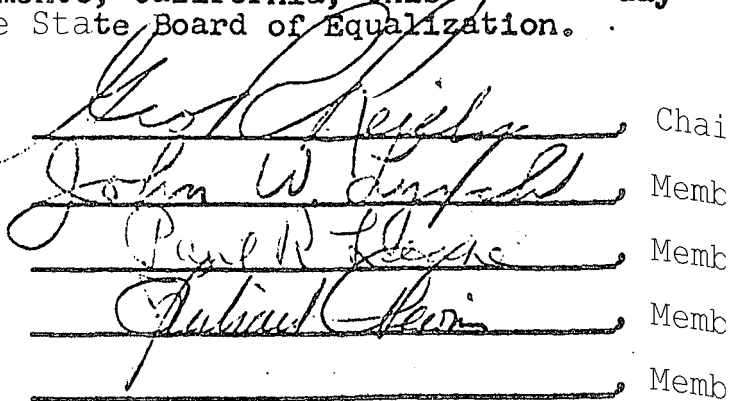 California,
e State Board of Equalization.
Geo R Reilly, Chai
John W. Lynch, Memb
Paul R Leake, Memb
Richard Nevins, Memb
, Memb